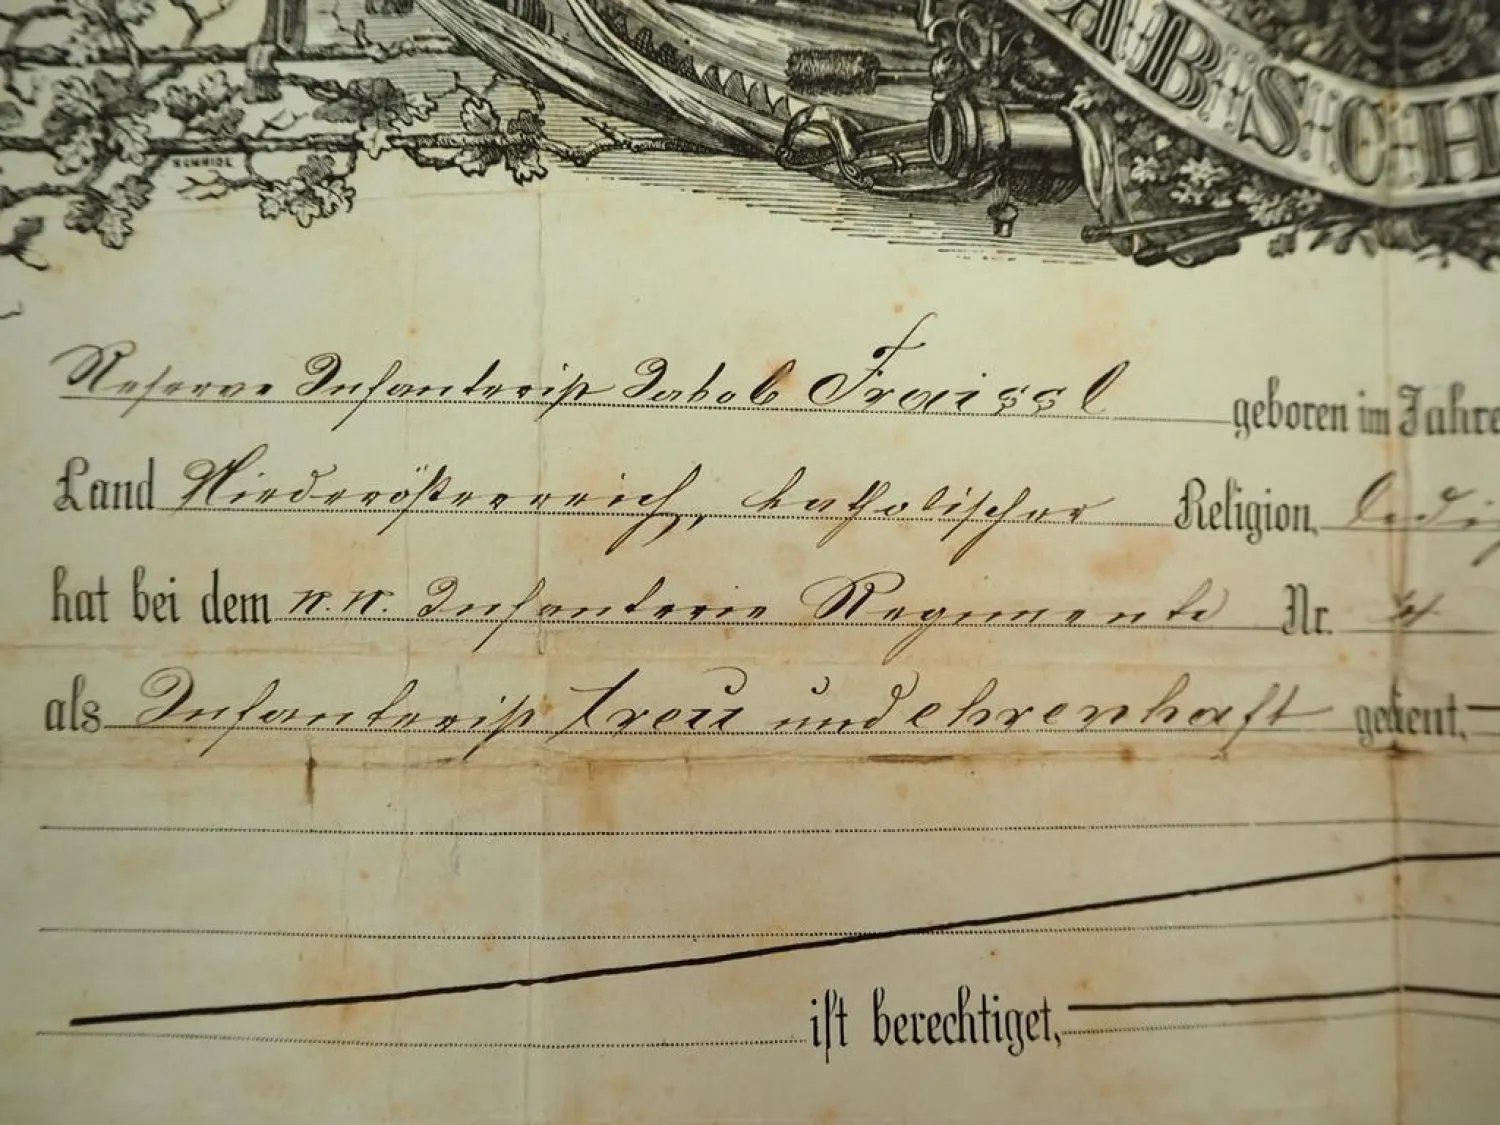 ABSCH
SCHMIDL
Reserve Infanterist Jakob Fraissl geboren im Jahre
Land Niederösterreich, katholischer Religion, ledig
hat bei dem K. K. Infanterie Regimente Nr. 4
als Infanterist treu und ehrenhaft gedient,
ist berechtiget,